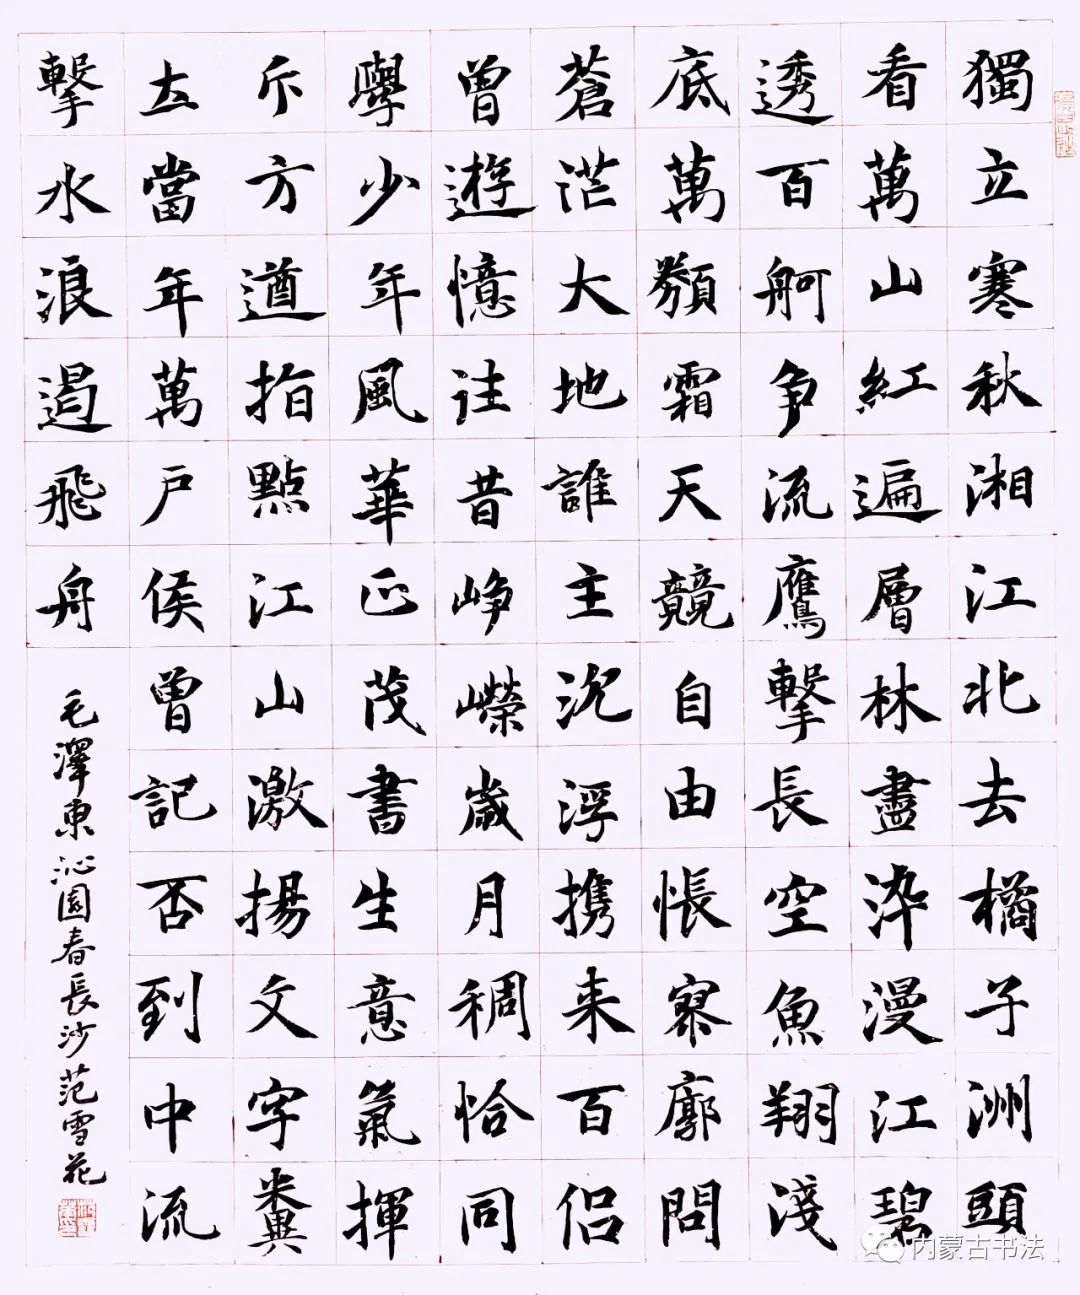 獨立寒秋湘江北去橘子洲頭
看萬山紅遍層林盡染漫江碧
透百舸争流鷹擊長空魚翔淺
底萬類霜天競自由悵寥廓問
蒼茫大地誰主沉浮携来百侣
曾遊憶往昔峥嶸歲月稠恰同
學少年風華正茂書生意氣揮
斥方遒指點江山激揚文字糞
土當年萬户侯曾記否到中流
擊水浪遏飛舟
毛澤東沁園春長沙范雪花
内蒙古书法